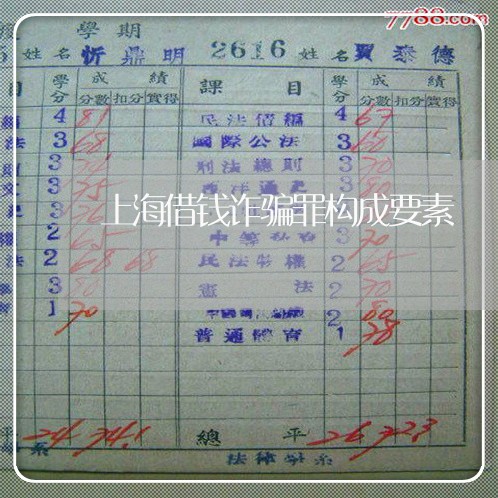 7788.com
學期
5 姓名 忻鼎明 2616 姓名 賈泰德
目 學分 成績 課目 學分 成績
分數 扣分 實得 分數 扣分 實得
4 81 民法債編 4 67
法 3 68 國際公法 3 60
3 刑法總則 3 70
3 75 西洋通史 3 80
3 76
上海借钱诈骗罪构成要素
2 65 3 70
法 2 68 68 民法物權 2 65
3 80 憲法 2 70
1 70 2 80
普通體育 1 78
平 24 74.1 總平 26 72.3
系 法律學系